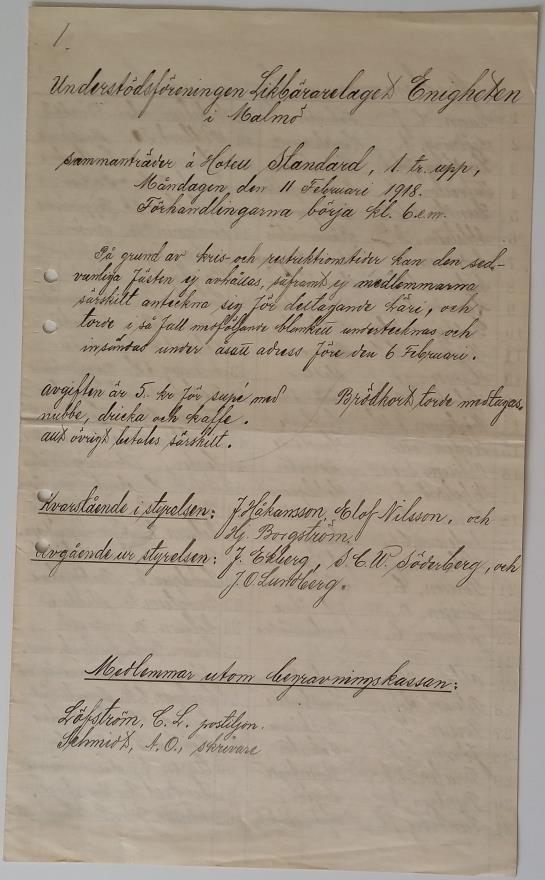 1.
Understödsföreningen Likbärarelaget Enigheten
i Malmö
sammanträder å Hotell Standard, 1 tr. upp,
Måndagen den 11 Februari 1918.
Förhandlingarna börja kl. 6 e.m.
På grund av kris och restriktionstider kan den sed-
vanliga festen ej avhållas, såframt ej medlemmarna
särskilt anteckna sig för deltagande däri, och
torde i så fall medföljande blankett undertecknas och
insändas under åsatt adress före den 6 Februari.
avgiften är 5. kr för supé med
nubbe, dricka och kaffe.
allt övrigt betales särskilt.
Brödkort torde medtagas.
Kvarstående i styrelsen: J Håkansson, Elof Nilsson, och
Hj. Borgström.
avgående ur styrelsen: J. Ekberg, S. C. W. Söderberg, och
J. O. Lundberg.
Medlemmar utom begravningskassan:
Löfström, C. L. postiljon.
Schmidt, A. O., skrivare